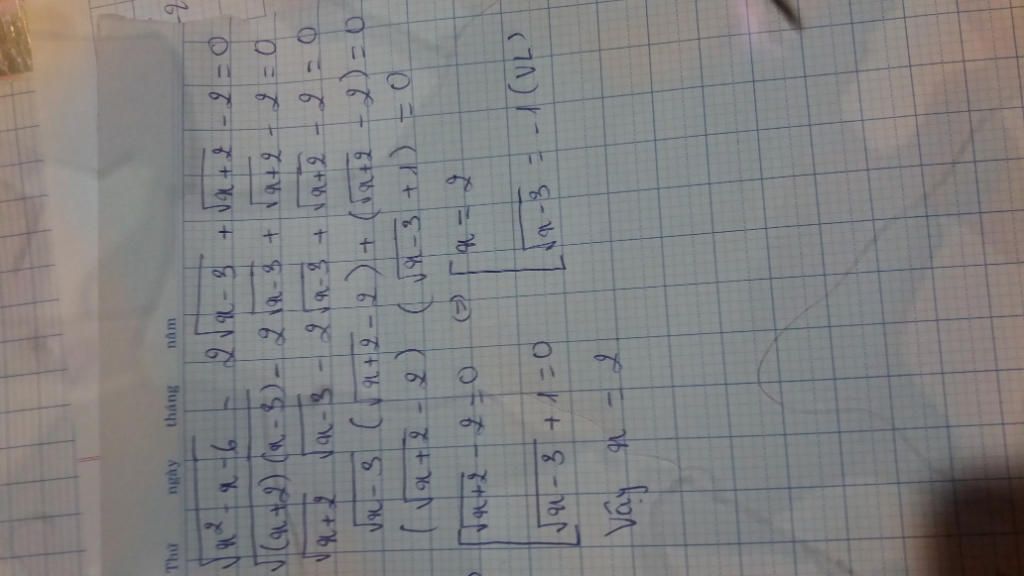 Thứ ngày tháng năm
√(x² - x - 6) - 2√(x-3) + √(x+2) - 2 = 0
√((x+2)(x-3)) - 2√(x-3) + √(x+2) - 2 = 0
√(x+2) √(x-3) - 2√(x-3) + √(x+2) - 2 = 0
√(x-3) (√(x+2) - 2) + (√(x+2) - 2) = 0
(√(x+2) - 2) (√(x-3) + 1) = 0
[ √(x+2) - 2 = 0 (=) [ x = 2
√(x-3) + 1 = 0 √(x-3) = -1 (VL)
Vậy x = 2